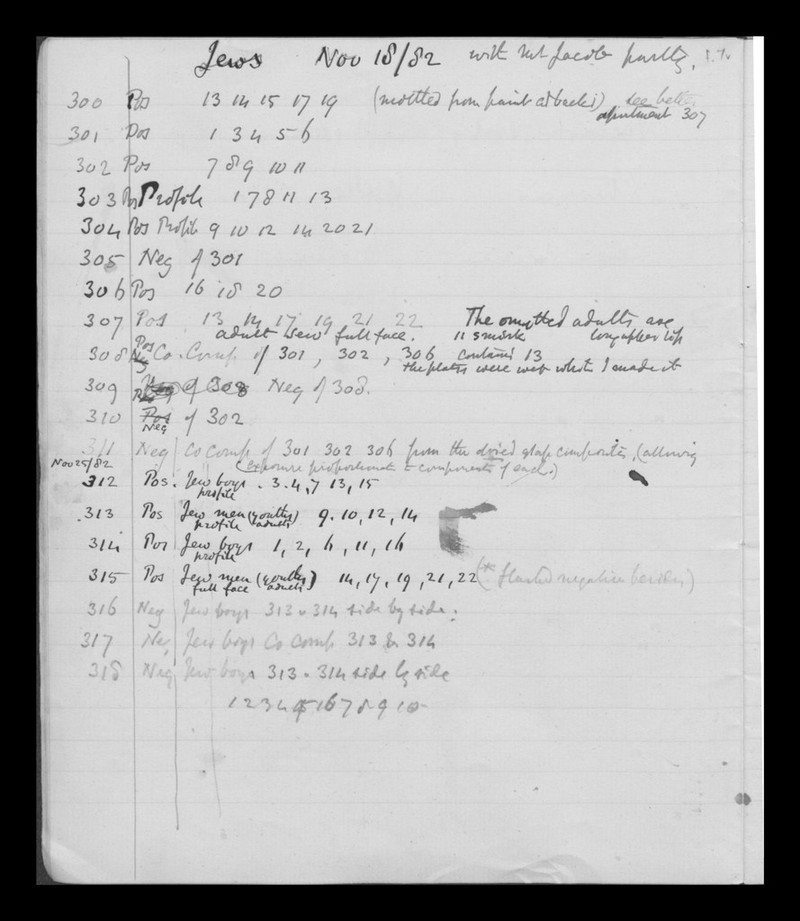 Jews Nov 18/82 with Mr Jacobs partly.
300 Pos 13 14 15 17 19 (mottled from paint at backs) see better
apartment 307
301 Pos 1 3 4 5 6
302 Pos 7 8 9 10 11
303 Pos Profile 1 7 8 11 13
304 Pos Profile 9 10 12 14 20 21
305 Neg of 301
306 Pos 16 18 20
307 Pos 13 14 17 19 21 22 The omitted adults are
adult Jews full face. 11 smirk long upper lip
308 Pos Co. Comp of 301, 302, 306 contains 13
the plates were wet when I made it
309 of 308 Neg of 308.
310 Pos Neg of 302
311 Neg Co comp of 301 302 306 from the dried glass composites, (allowing
exposure proportionate to components of each.)
Nov 25/82
312 Pos. Jew boys . 3. 4, 7 13, 15
profile
313 Pos Jew men (youths) 9. 10, 12, 14
profile adults
314 Pos Jew boys 1, 2, 6, 11, 16
profile
315 Pos Jew men (youths) 14, 17, 19, 21, 22 (* flashed negative besides)
full face adults
316 Neg Jew boys 313 . 314 side by side.
317 Neg Jew boys Co comp 313 & 314
318 Neg Jew boys 313 . 314 side by side
1 2 3 4 5 16 7 8 9 10